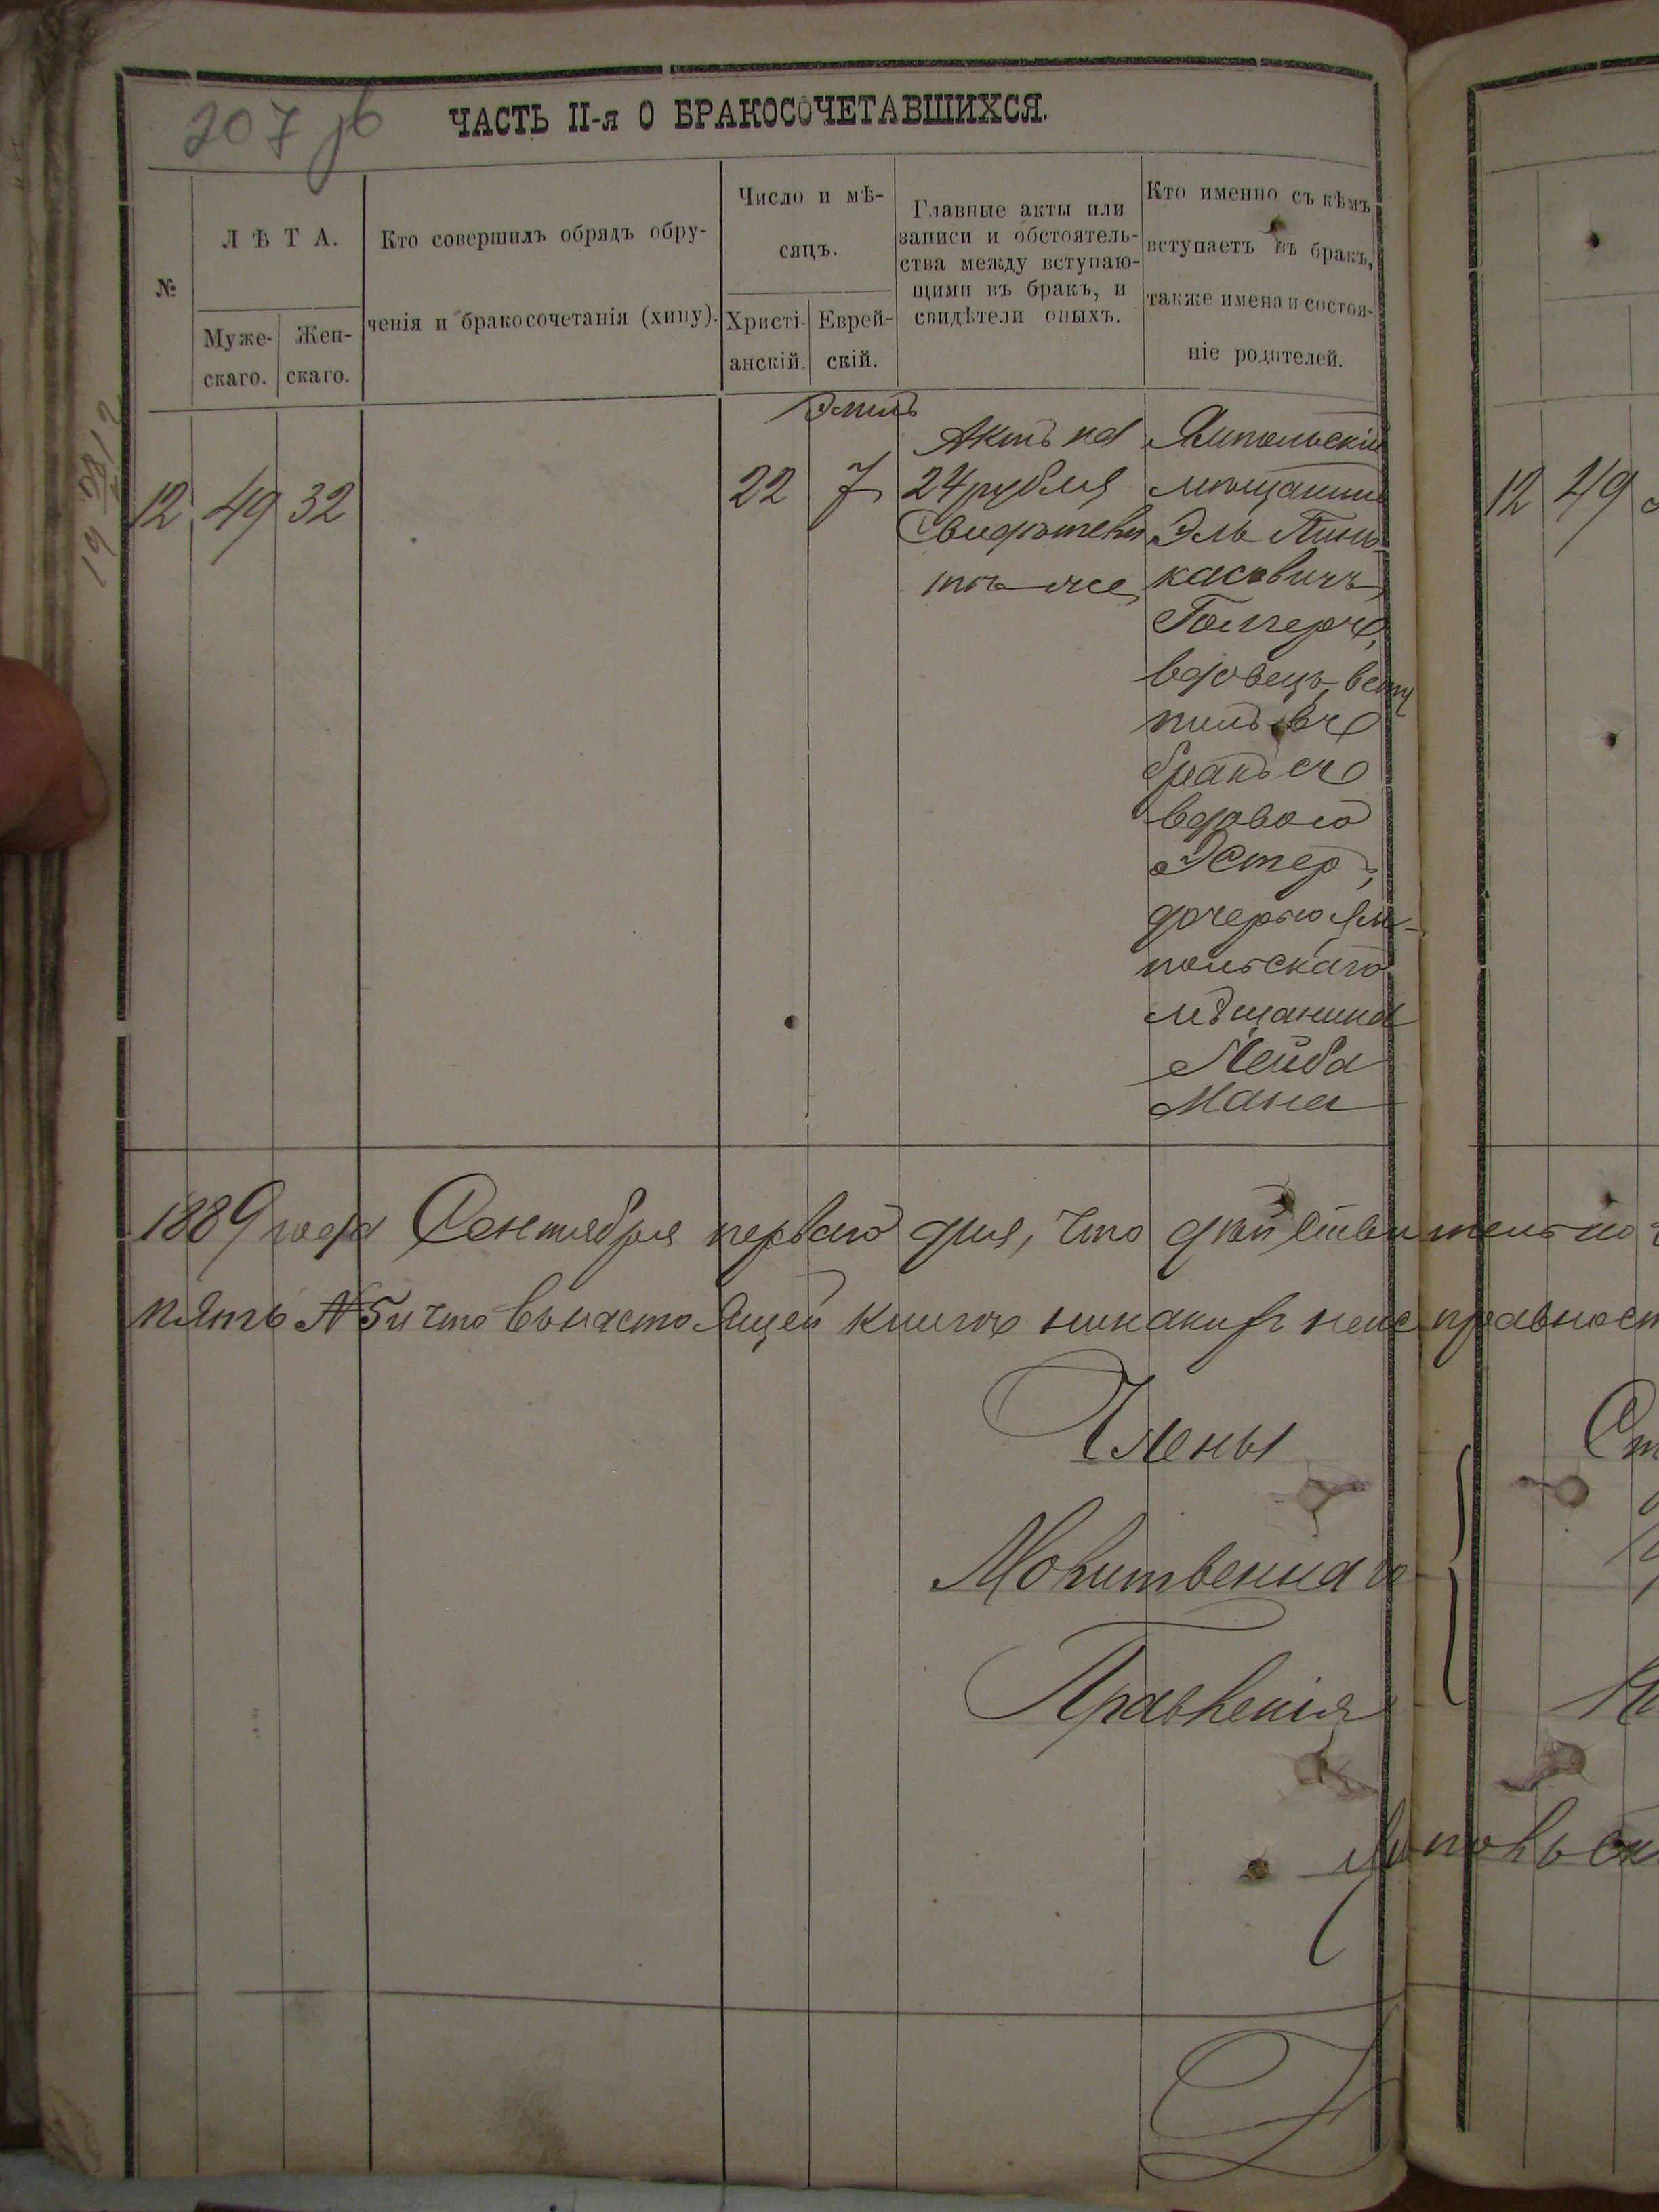 207 об
ЧАСТЬ II-я О БРАКОСОЧЕТАВШИХСЯ.
№
ЛѢТА.
Муже-
скаго.
Жен-
скаго.
Кто совершилъ обрядъ обру-
ченія и бракосочетанія (хипу).
Число и мѣ-
сяцъ.
Христі-
анскій.
Еврей-
скій.
Главные акты или
записи и обстоятель-
ства между вступаю-
щими въ бракъ, и
свидѣтели оныхъ.
Кто именно съ кѣмъ
вступаетъ въ бракъ,
также имена и состоя-
ніе родителей.
12
49
32
22
7
Актъ на
24 рубля
Свидѣтели
тѣ же
Ямпольскій
мѣщанинъ
Эль Пинь-
касовичъ
вдовецъ, всту
пилъ въ
бракъ съ
вдовою
Эстер,
дочерью Ям-
польскаго
мѣщанина
Лейба
Мана
12 49
1889 года Сентября перваго дня, что дѣйствительно
пять №5 и что въ настоящей книгѣ никакихъ неисправност
Члены
Молитвеннаго
Правленія